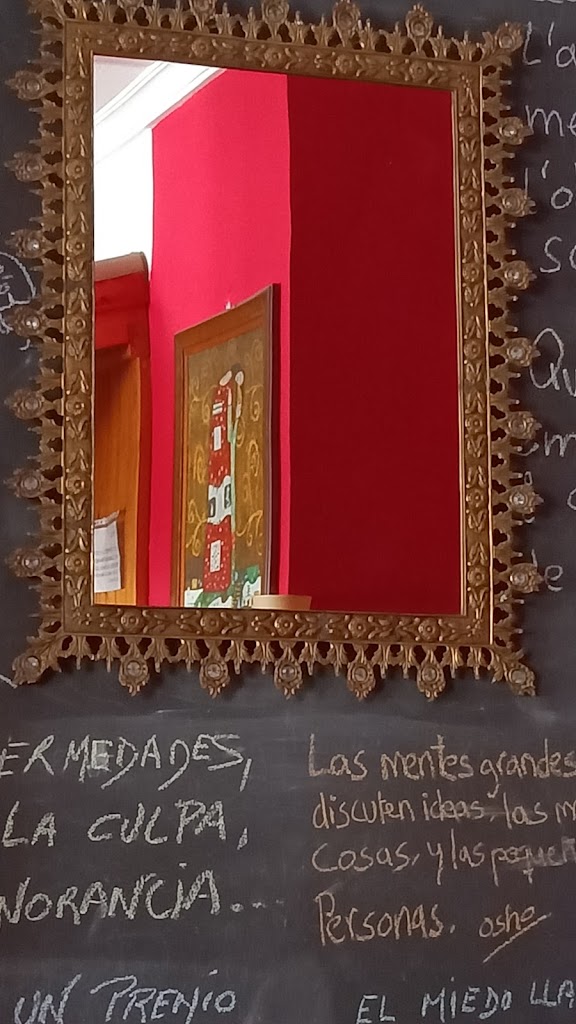 L'a
me
l'o
so
Qu
em
de
ERMEDADES,
LA CULPA,
NORANCIA...
Las mentes grandes
discuten ideas, las m
cosas, y las pequeñ
Personas. osho
UN PREMIO
EL MIEDO LLA